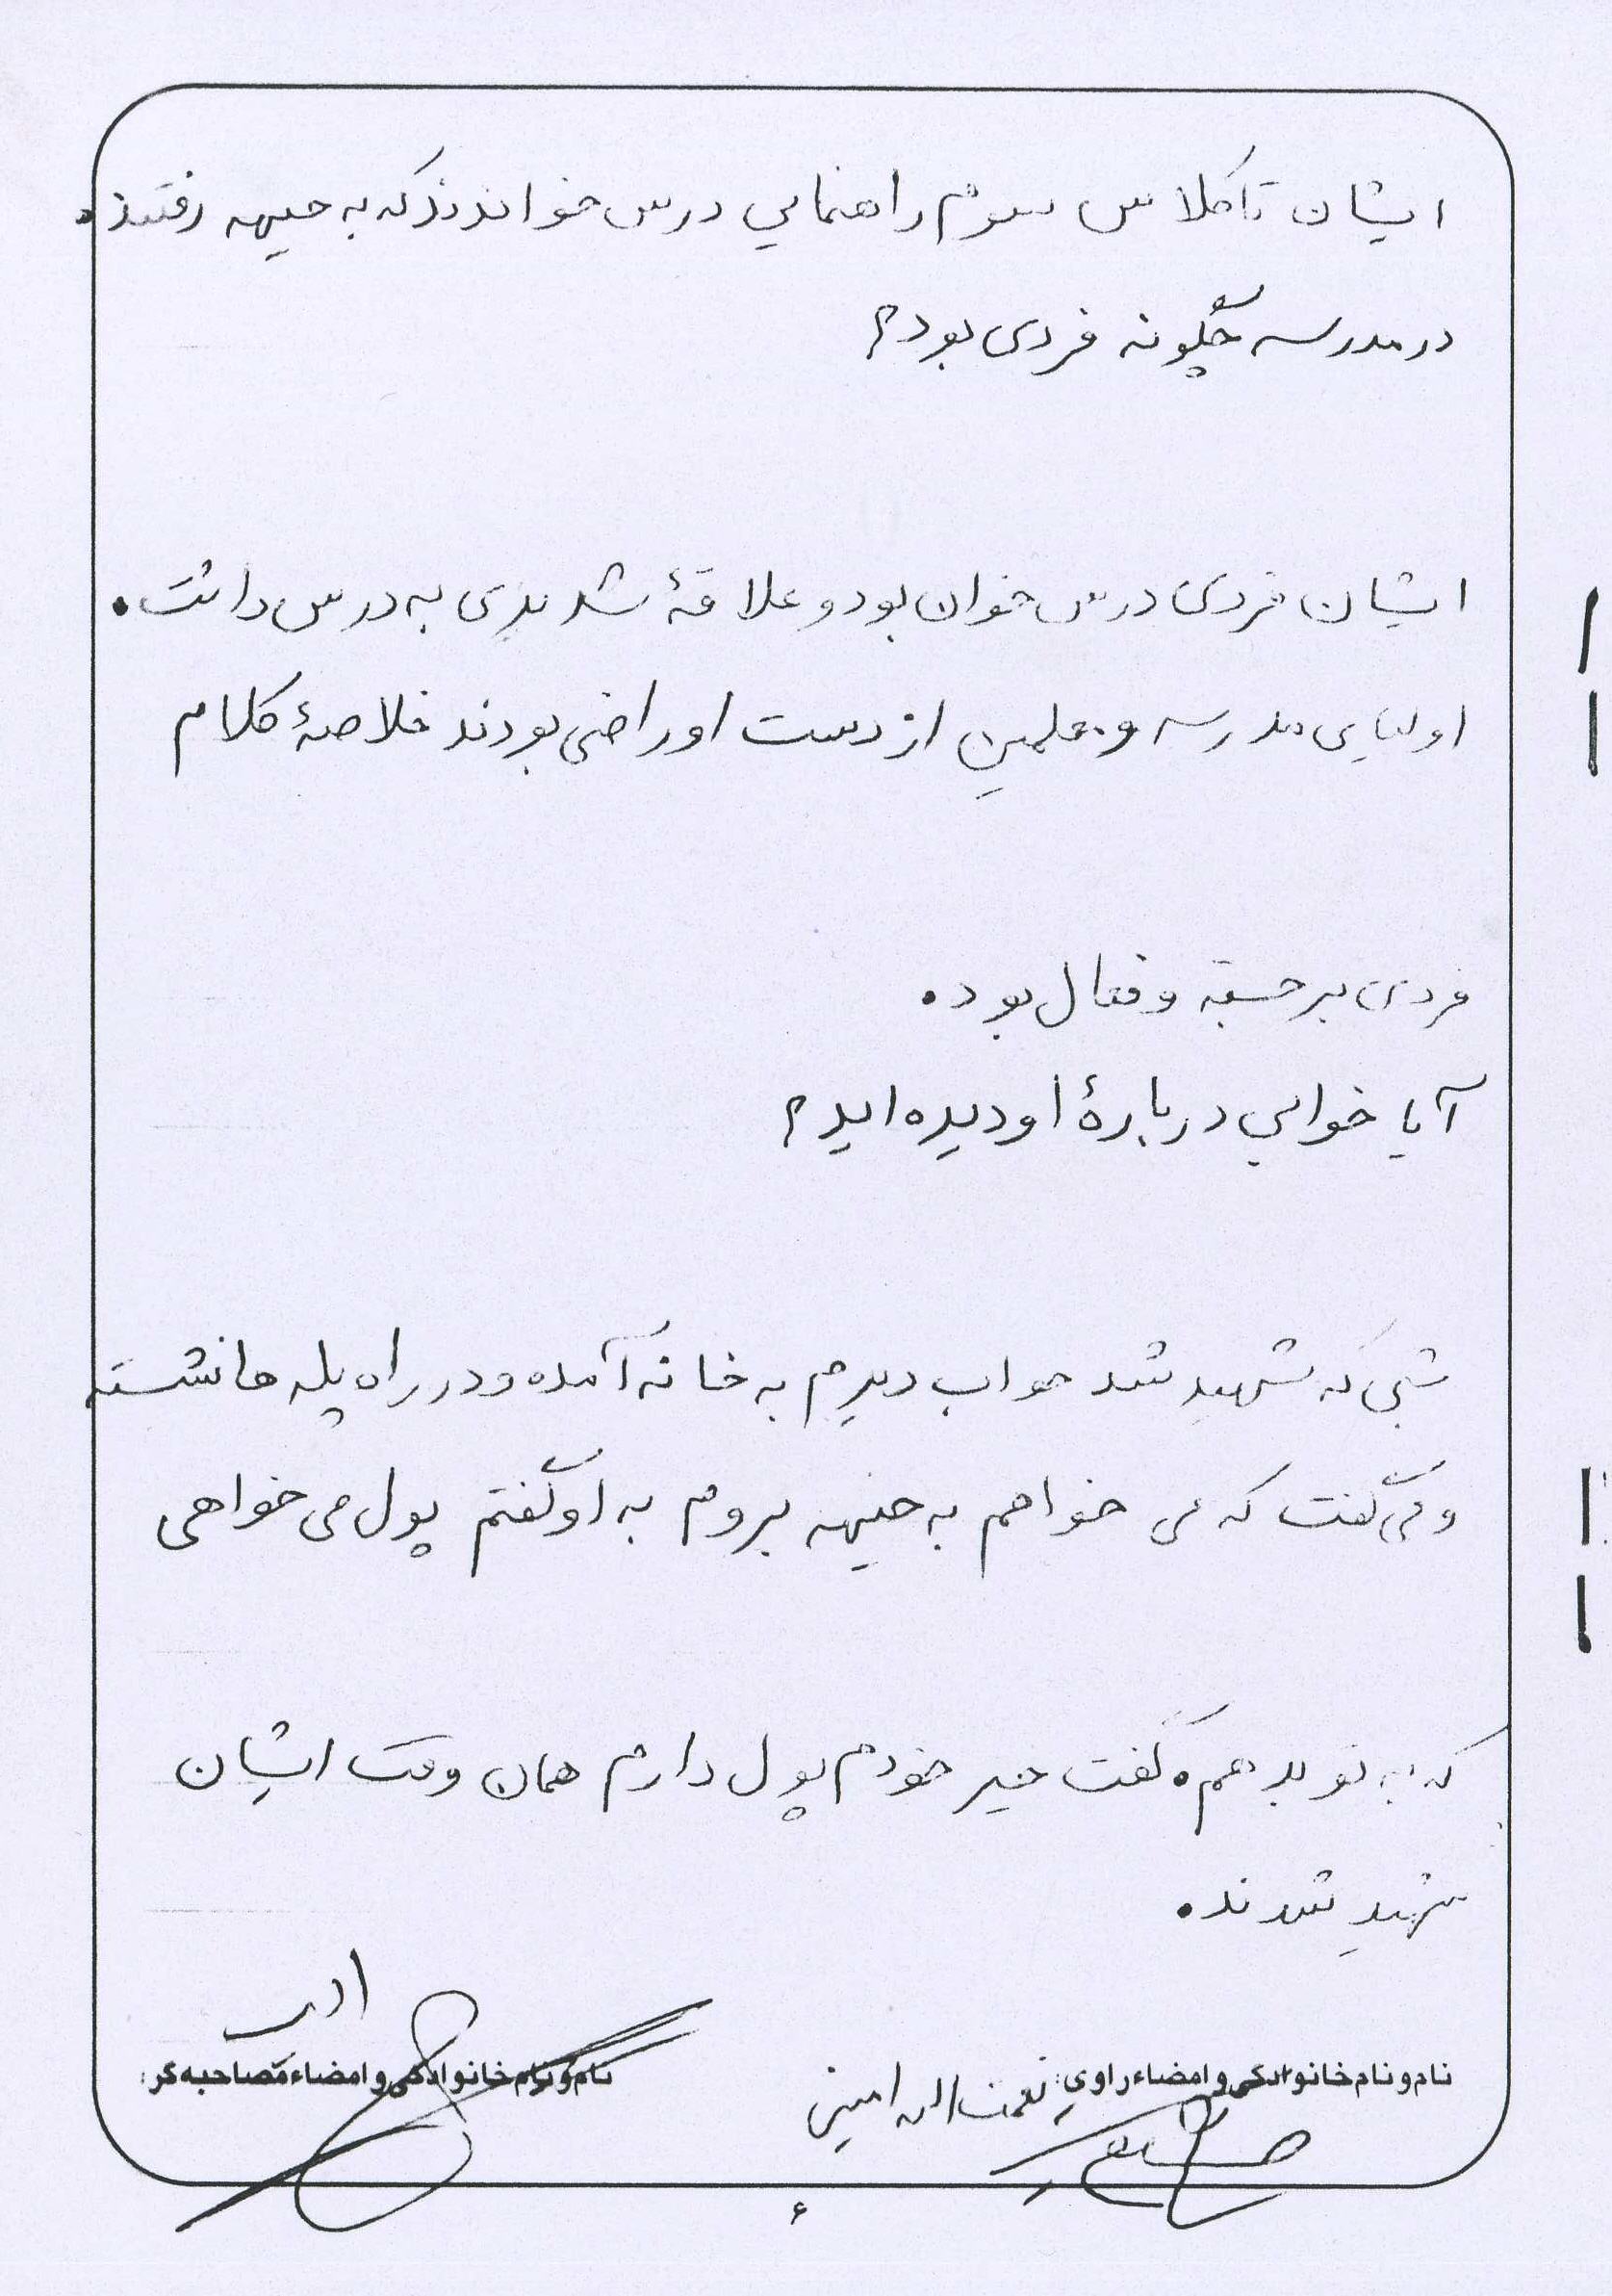 ایشان تا کلاس سوم راهنمایی درس خواندند که به جبهه رفتند.
در مدرسه چگونه فردی بود؟
ایشان فردی درس خوان بود و علاقهٔ شدیدی به درس داشت.
اولیای مدرسه و معلمین از دست او راضی بودند خلاصهٔ کلام
فردی برجسته و فعال بود.
آیا خوابی دربارهٔ او دیده اید؟
شبی که شهید شد خواب دیدم به خانه آمده و در راه پله ها نشسته
و می گفت که می خواهم به جبهه بروم به او گفتم پول می خواهی
که به تو بدهم. گفت خیر خودم پول دارم همان وقت ایشان
شهید شدند.
نام و نام خانوادگی و امضاء راوی: نعمت الله امینی
نام و نام خانوادگی و امضاء مصاحبه گر:
۶